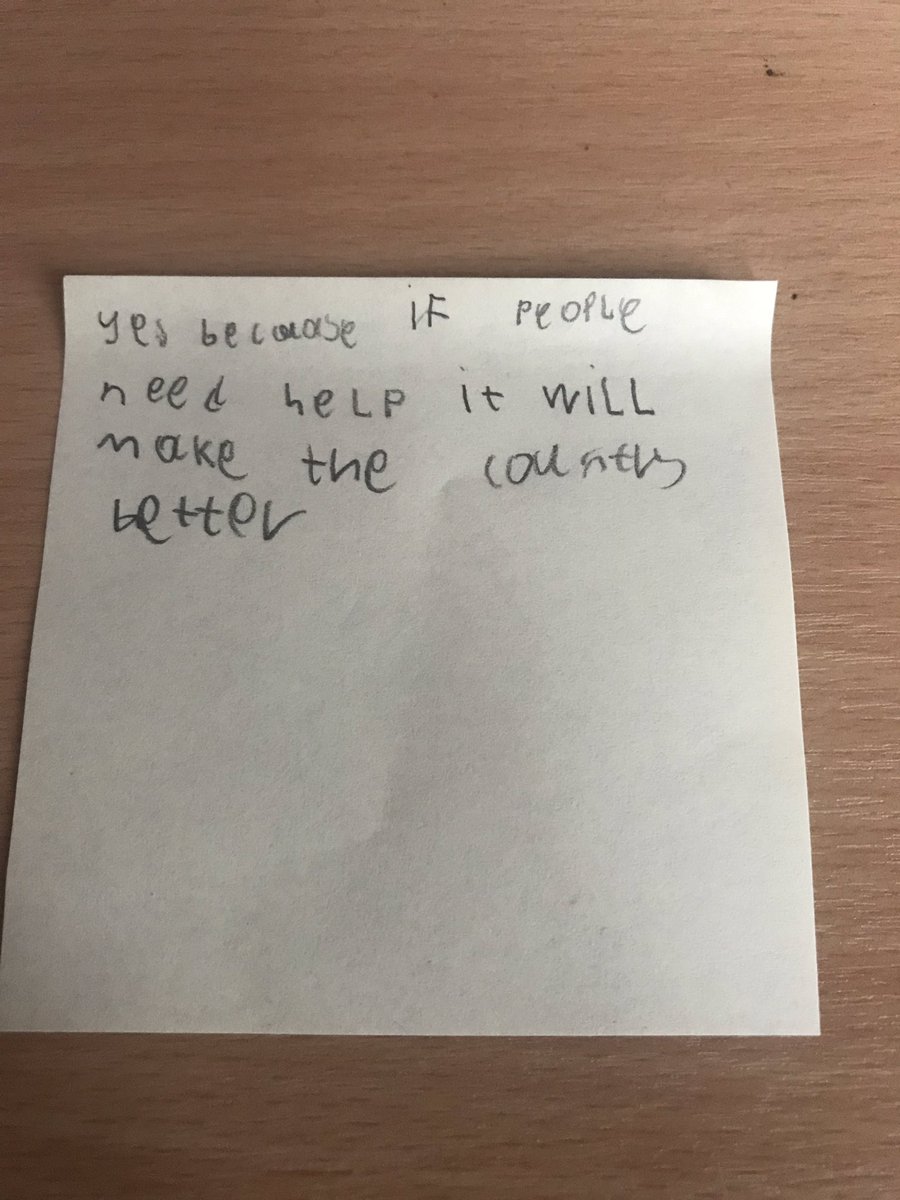 yes because IF PEOPLE
need help it will
make the country
better